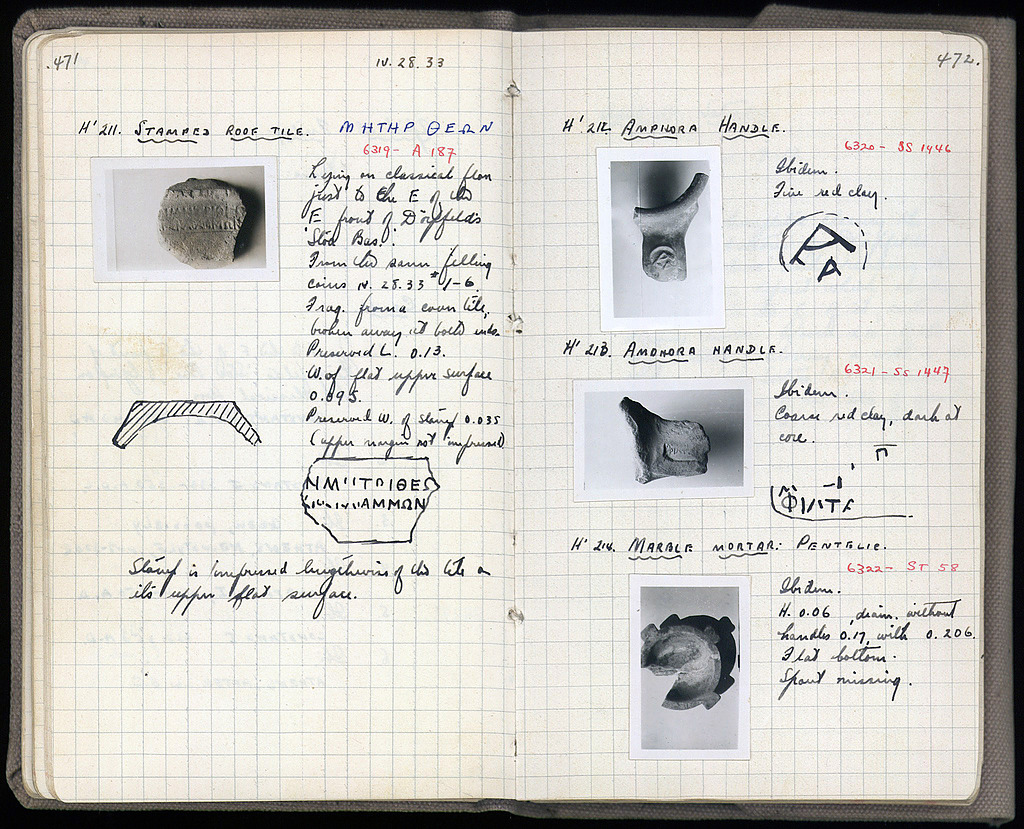 471
IV. 28. 33
H' 211. STAMPED ROOF TILE. ΜΗΤΗΡ ΘΕΩΝ
6319 - A 187
Lying on classical floor
just to the E of the
E front of Dörpfeld's
'Stoa Bas.'.
From the same filling
coins IV. 28.33 # 1-6.
Frag. from a cover tile,
broken away at both ends.
Preserved L. 0.13.
W. of flat upper surface
0.095.
Preserved W. of stamp 0.035
(upper margin not impressed)
ΑΜΜΩΝ
Stamp is impressed lengthwise of the tile on
its upper flat surface.
472.
H' 212. AMPHORA HANDLE.
6320 - SS 1446
Ibidem.
Fine red clay.
H' 213. AMPHORA HANDLE.
6321 - SS 1447
Ibidem.
Coarse red clay, dark at
core.
H' 214. MARBLE MORTAR: PENTELIC.
6322 - ST 58
Ibidem.
H. 0.06, diam. without
handles 0.17, with 0.206.
Flat bottom.
Spout missing.